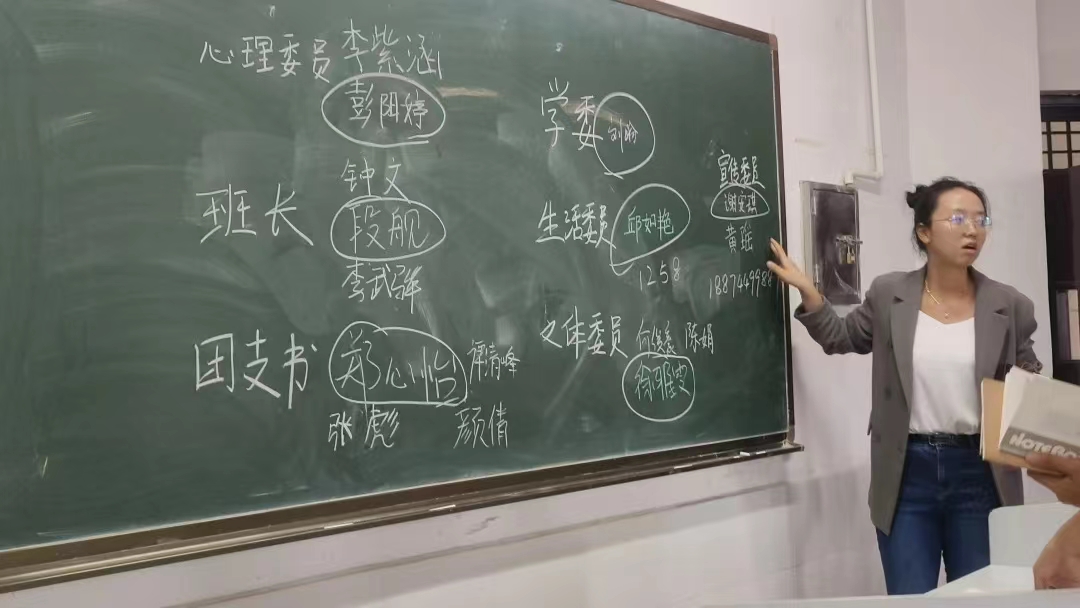 心理委员 李紫涵
彭阳婷
班长
钟文
段舰
李武骅
团支书 郑心怡 谭清峰
张彪 颜倩
学委 刘盼
生活委员 邱如艳
1258
宣传委员
谢安琪
黄瑶
1887449988
文体委员 何俊豪 陈娟
徐雅雯
NOTEBO